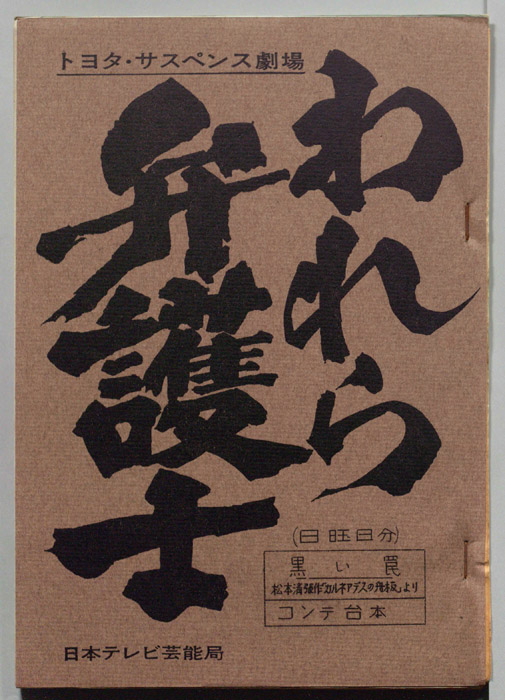 トヨタ・サスペンス劇場
われら
弁護士
(日曜日分)
黒い罠
松本清張作「カルネアデスの舟板」より
コンテ台本
日本テレビ芸能局